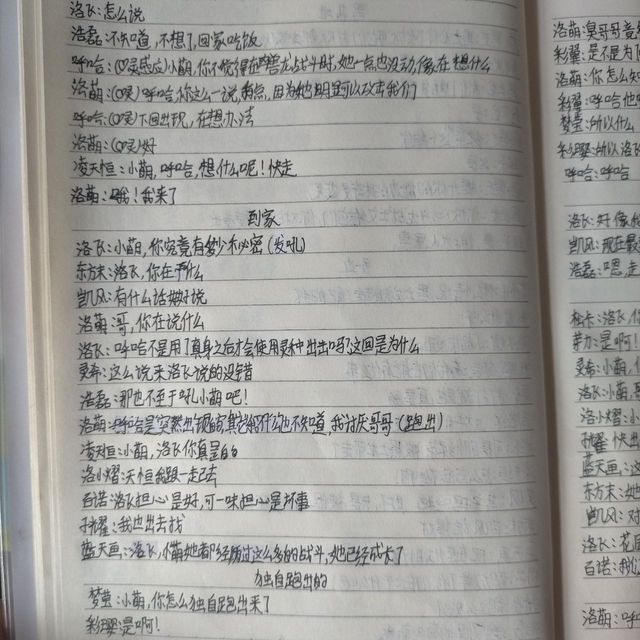 洛飞:怎么说
浩磊:不知道,不想了,回家吃饭
呼哈:(心灵感应)小萌,你不觉得在兽龙战斗时,她一点也没动,像在想什么
洛萌:(心灵)呼哈,你这么一说,有点,因为她明里可以攻击我们
呼哈:(心灵)下回出现,在想办法
洛萌:(心灵)好
凌天恒:小萌,呼哈,想什么呢!快走
洛萌:哦!我来了
到家
洛飞:小萌,你究竟有多少秘密(发吼)
东方末:洛飞,你在干什么
凯风:有什么话好好说
洛萌:哥,你在说什么
洛飞:呼哈不是用了真身之后才会使用灵种出击吗?这回是为什么
灵希:这么说来洛飞说的没错
浩磊:那也不至于吼小萌吧!
洛萌:呼哈是突然出现的,其它的什么也不知道,我讨厌哥哥(跑出)
凌天恒:小萌,洛飞你真是的
洛小熠:天恒我跟一起去
百诺:洛飞担心是好,可一味担心是坏事
子耀:我也出去找
蓝天画:洛飞,小萌她都经历过这么多的战斗,她已经成长了
独自跑出的
梦莹:小萌,你怎么独自跑出来了
彩翼:是啊!
洛萌:臭哥哥竟
彩翼:是不是为
洛萌:你怎么知
彩翼:呼哈他
梦莹:所以什么
彩翼:所以洛飞
呼哈:呼哈
洛飞:好像
凯风:现在最
浩磊:嗯,走
洛飞,你
是啊!
灵希:小萌,
洛飞:小萌,
洛小熠:小
子耀:快出
蓝天画:这
东方末:她
凯风:对
洛飞:花
百诺:
洛萌:呼